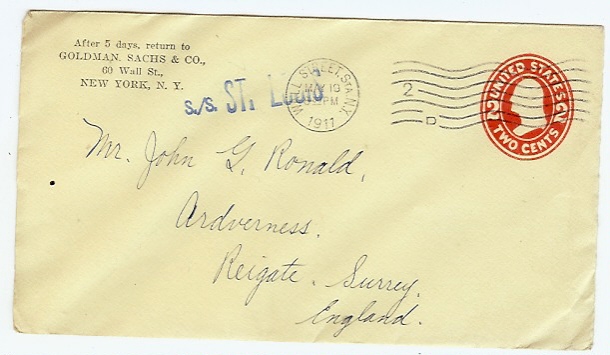 After 5 days, return to
GOLDMAN, SACHS & CO.,
60 Wall St.,
NEW YORK, N. Y.
S/S. ST. LOUIS
WALL STREET, STA. N.Y.
MAY 19
PM
1911
2
D
UNITED STATES
2 2
TWO CENTS
Mr. John G. Ronald,
Ardverness.
Reigate. Surrey.
England.